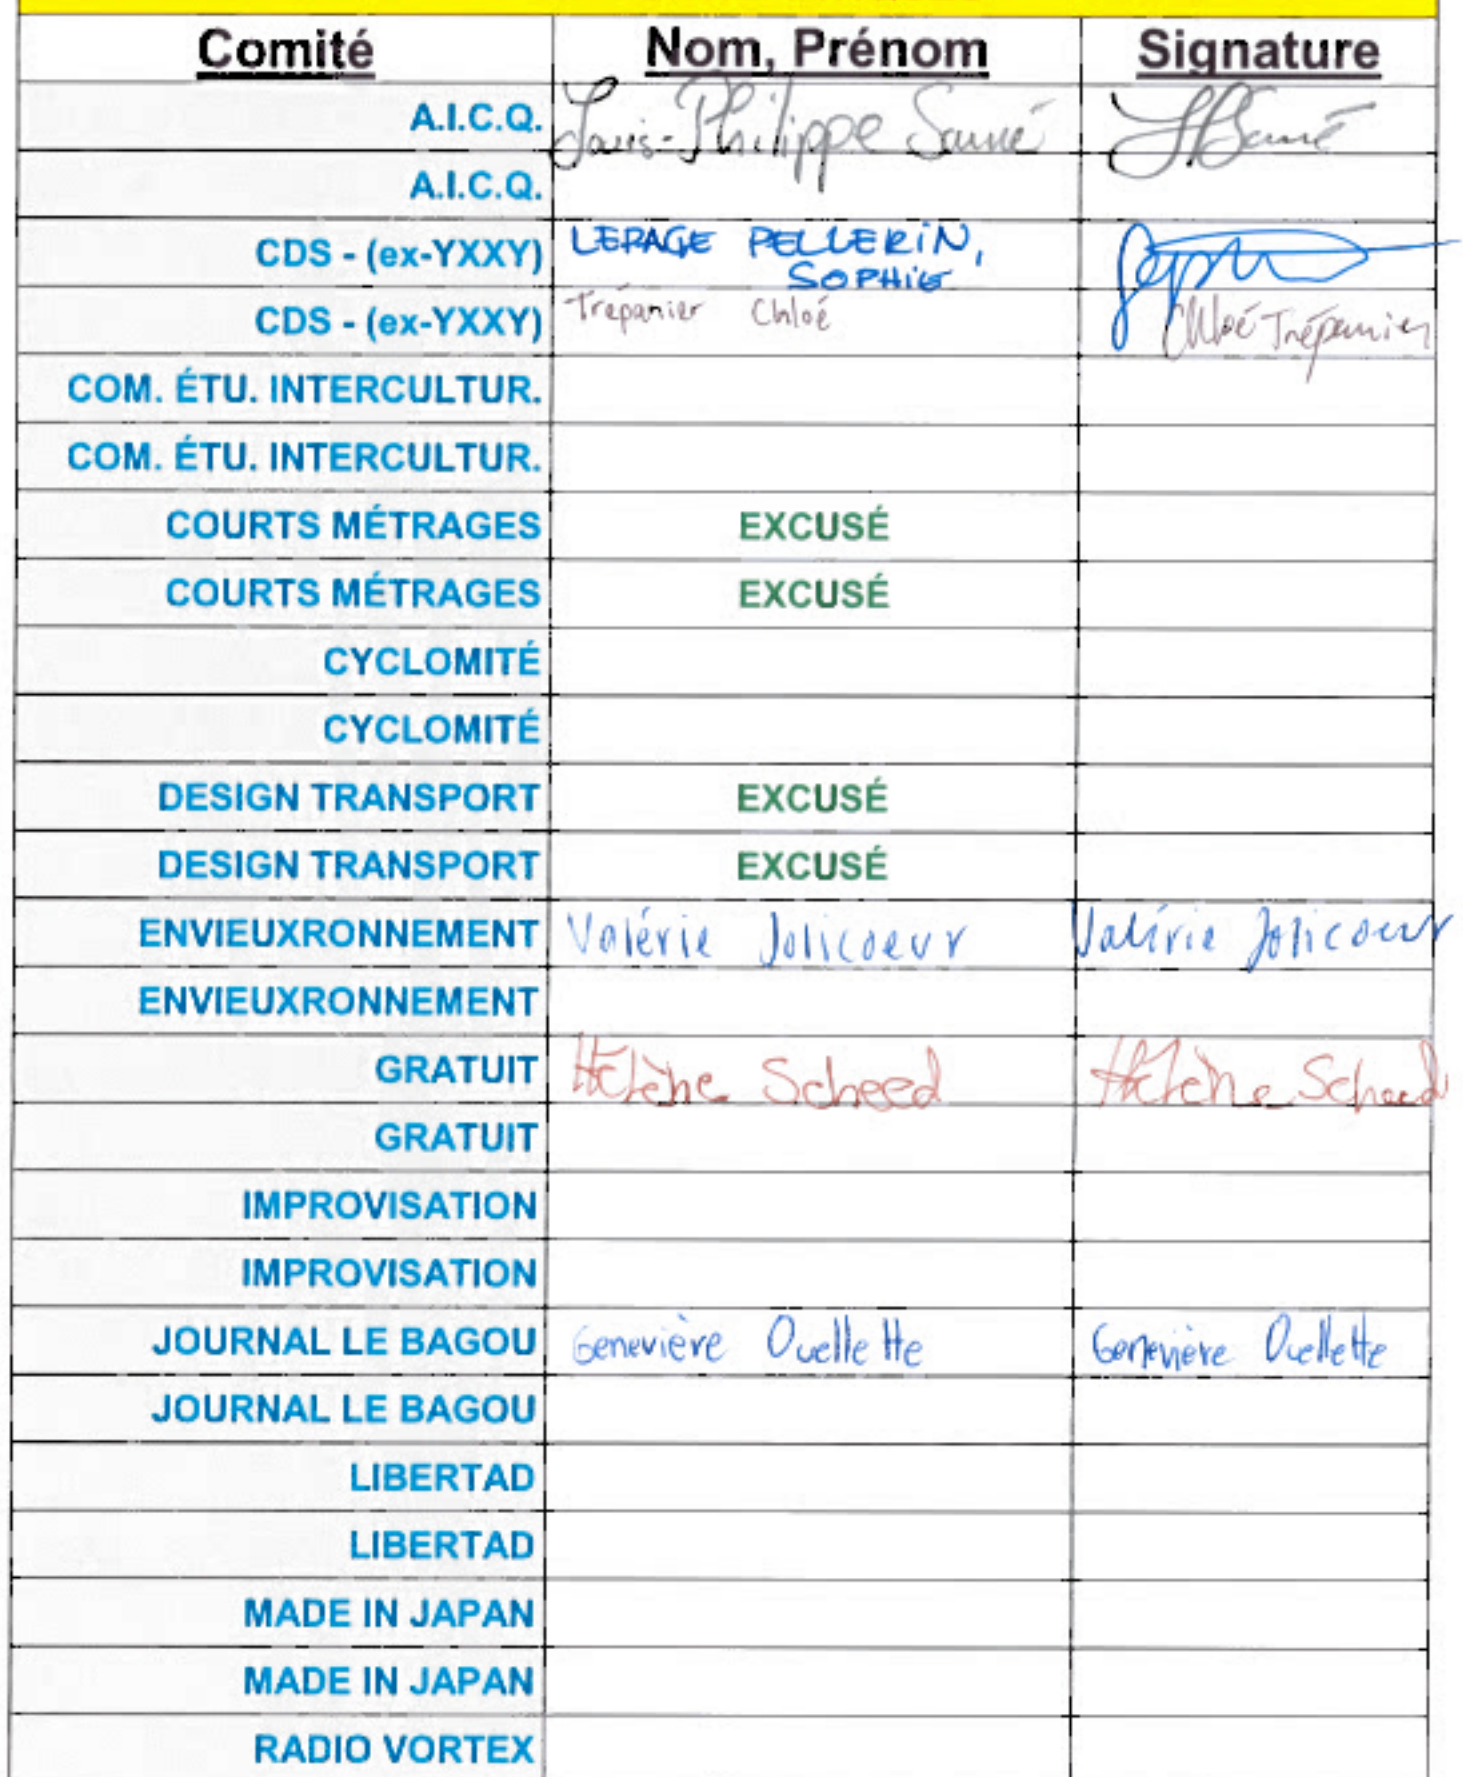 Comité Nom, Prénom Signature
A.I.C.Q. Louis-Philippe Sauvé
A.I.C.Q.
CDS - (ex-YXXY) LEPAGE PELLERIN,
SOPHIE
CDS - (ex-YXXY) Trépanier Chloé Chloé Trépanier
COM. ÉTU. INTERCULTUR.
COM. ÉTU. INTERCULTUR.
COURTS MÉTRAGES EXCUSÉ
COURTS MÉTRAGES EXCUSÉ
CYCLOMITÉ
CYCLOMITÉ
DESIGN TRANSPORT EXCUSÉ
DESIGN TRANSPORT EXCUSÉ
ENVIEUXRONNEMENT Valérie Jolicoeur Valérie Jolicoeur
ENVIEUXRONNEMENT
GRATUIT Hélène Scheed Hélène Scheed
GRATUIT
IMPROVISATION
IMPROVISATION
JOURNAL LE BAGOU Geneviève Ouellette Geneviève Ouellette
JOURNAL LE BAGOU
LIBERTAD
LIBERTAD
MADE IN JAPAN
MADE IN JAPAN
RADIO VORTEX